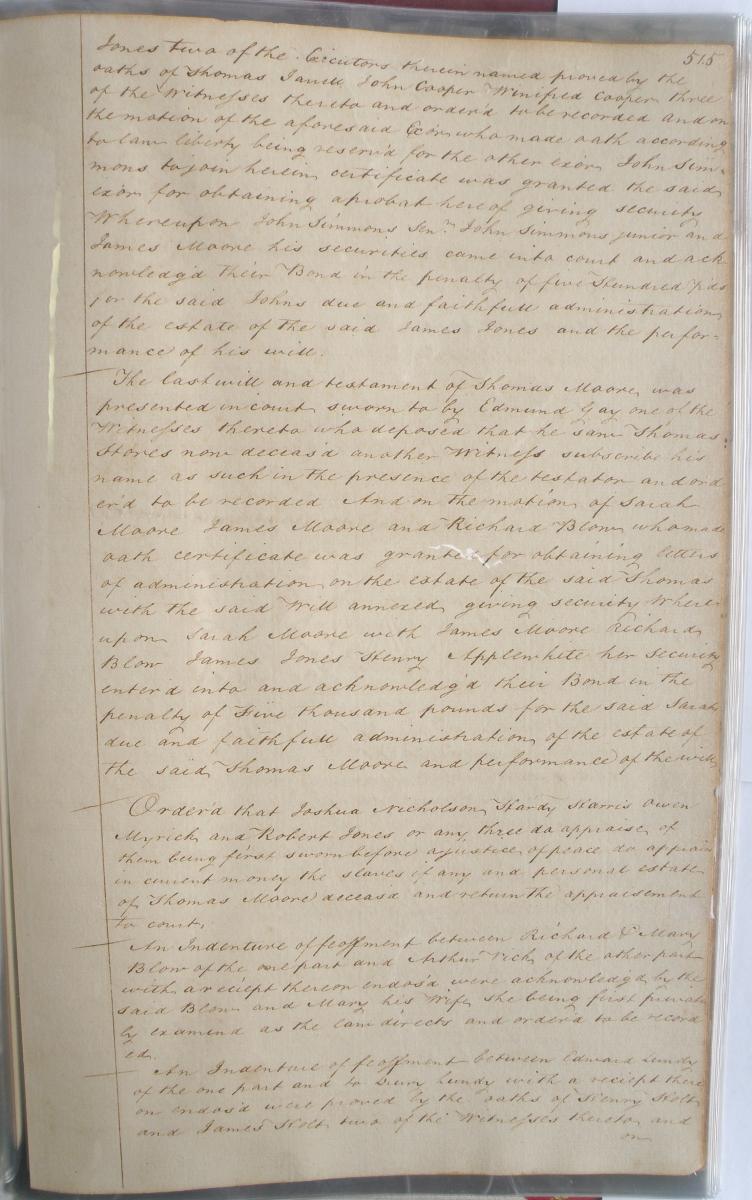 515
Jones two of the Executors therein named proved by the
oaths of Thomas John Cooper Winifred Cooper three
of the Witnesses thereto and order'd to be recorded and on
the motion of the aforesaid Exōrs who made oath according
to law liberty being reserv'd for the other exōr John Sim-
mons to join herein certificate was granted the said
exōr for obtaining a probat hereof giving security
Whereupon John Simmons Senr. John Simmons junior and
James Moore his securities came into court and ack
nowledg'd their Bond in the penalty of five Hundred pds
for the said Johns due and faithfull administration
of the estate of the said James Jones and the perfor-
mance of his will.
The last will and testament of Thomas Moore was
presented in court sworn to by Edmund Gay one of the
Witnesses thereto who deposed that he saw Thomas
Stores now deceas'd another Witness subscribe his
name as such in the presence of the testator and ord
er'd to be recorded And on the motion of Sarah
Moore James Moore and Richard Blow who made
oath certificate was granted for obtaining letters
of administration on the estate of the said Thomas
with the said Will annexed giving security Where
upon Sarah Moore with James Moore Richard
Blow James Jones Henry Applewhite her security
enter'd into and acknowledg'd their Bond in the
penalty of Five thousand pounds for the said Sarah
due and faithfull administration of the estate of
the said Thomas Moore and performance of the will
Order'd that Joshua Nicholson Hardy Harris Owen
Myrick and Robert Jones or any three do appraise of
them being first sworn before a justice of peace do apprais
in current money the slaves if any and personal estate
of Thomas Moore deceas'd and return the appraisement
to court.
An Indenture of feoffment between Richard & Mary
Blow of the one part and Arthur Vick of the other part
with a reciept thereon endors'd were acknowledg'd by the
said Blow and Mary his Wife she being first private
ly examined as the law directs and order'd to be record
ed.
An Indenture of feoffment between Edward Lundy
of the one part and to Lundy with a reciept there
on endors'd were proved by the oaths of Henry Holt
and James Holt two of the Witnesses thereto and
on